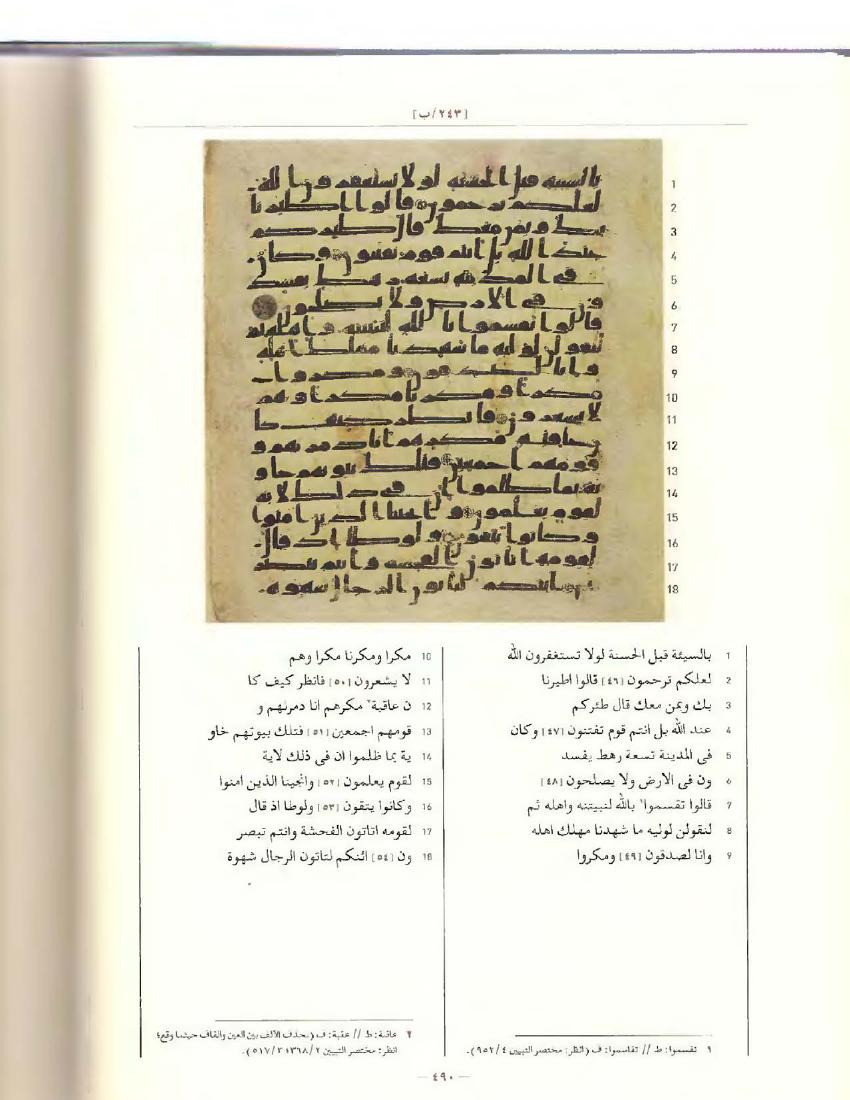 [٢٤٣/ب]
1
2
3
4
5
6
7
8
9
10
11
12
13
14
15
16
17
18
1 بالسيئة قبل الحسنة لولا تستغفرون الله
2 لعلكم ترحمون [٤٦] قالوا اطيرنا
3 بك وبمن معك قال طئركم
4 عند الله بل انتم قوم تفتنون [٤٧] وكان
5 فى المدينة تسعة رهط يفسد
6 ون فى الارض ولا يصلحون [٤٨]
7 قالوا تقسموا١ بالله لنبيتنه واهله ثم
8 لنقولن لوليه ما شهدنا مهلك اهله
9 وانا لصدقون [٤٩] ومكروا
10 مكرا ومكرنا مكرا وهم
11 لا يشعرون [٥٠] فانظر كيف كا
12 ن عاقبة٢ مكرهم انا دمرنهم و
13 قومهم اجمعين [٥١] فتلك بيوتهم خاو
14 ية بما ظلموا ان فى ذلك لاية
15 لقوم يعلمون [٥٢] وانجينا الذين امنوا
16 وكانوا يتقون [٥٣] ولوطا اذ قال
17 لقومه اتاتون الفحشة وانتم تبصر
18 ون [٥٤] ائنكم لتاتون الرجال شهوة
١ تقسموا: ط // تقاسموا: ف (انظر: مختصر التبيين ٤/٩٥٢).
٢ عاقبة: ط // عقبة: ف (بحذف الألف بين العين والقاف حيثما وقع؛
انظر: مختصر التبيين ٢/٣٦٨؛ ٣/٥١٧).
— ٤٩٠ —